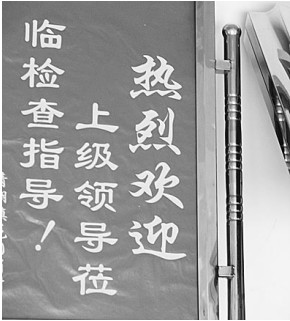 热烈欢迎
上级领导莅
临检查指导！